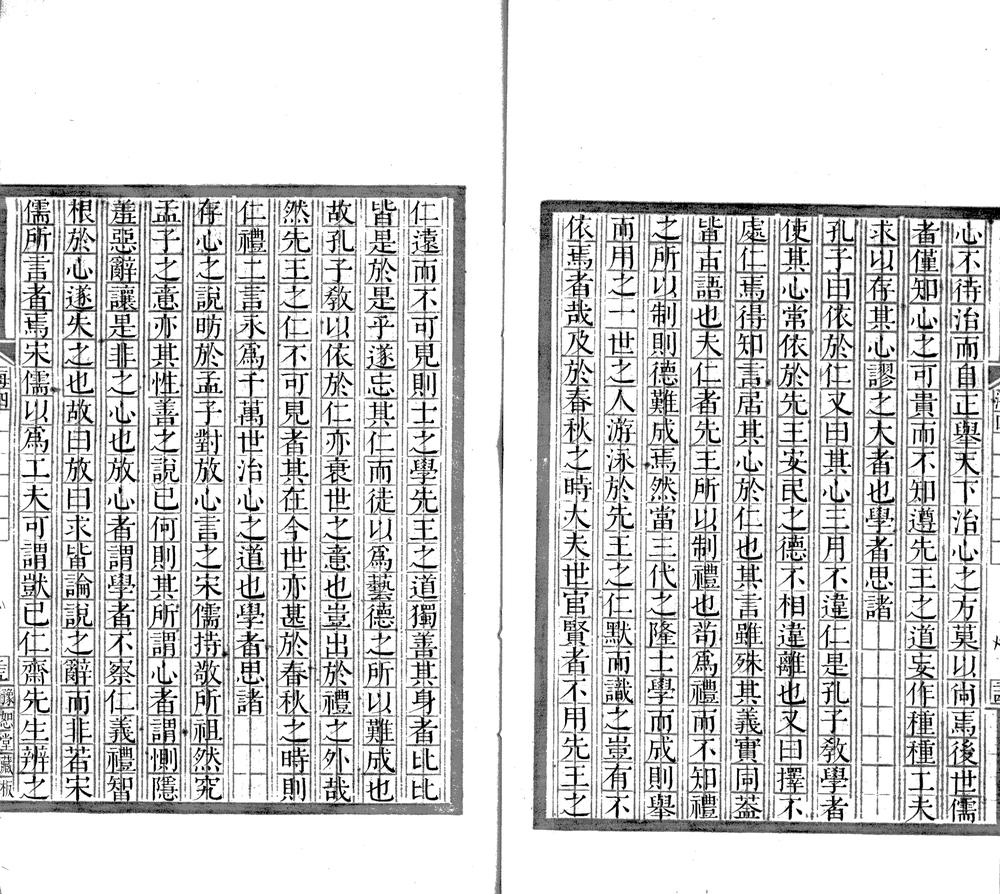 心不待治而自正舉天下治心之方莫以尚焉後世儒
者僅知心之可貴而不知遵先王之道妄作種種工夫
求以存其心謬之大者也學者思諸
孔子曰依於仁又曰其心三月不違仁是孔子教學者
使其心常依於先王安民之德不相違離也又曰擇不
處仁焉得知言居其心於仁也其言雖殊其義實同蓋
皆古語也夫仁者先王所以制禮也苟爲禮而不知禮
之所以制則德難成焉然當三代之隆士學而成則舉
而用之一世之人游泳於先王之仁默而識之豈有不
依焉者哉及於春秋之時大夫世官賢者不用先王之
仁遠而不可見則士之學先王之道獨善其身者比比
皆是於是乎遂忘其仁而徒以爲藝德之所以難成也
故孔子教以依於仁亦衰世之意也豈出於禮之外哉
然先王之仁不可見者其在今世亦甚於春秋之時則
仁禮二言永爲千萬世治心之道也學者思諸
存心之說昉於孟子對放心言之宋儒持敬所祖然究
孟子之意亦其性善之說已何則其所謂心者謂惻隱
羞惡辭讓是非之心也放心者謂學者不察仁義禮智
根於心遂失之也故曰放曰求皆論說之辭而非若宋
儒所言者焉宋儒以爲工夫可謂獃已仁齋先生辨之
豫恕堂藏板